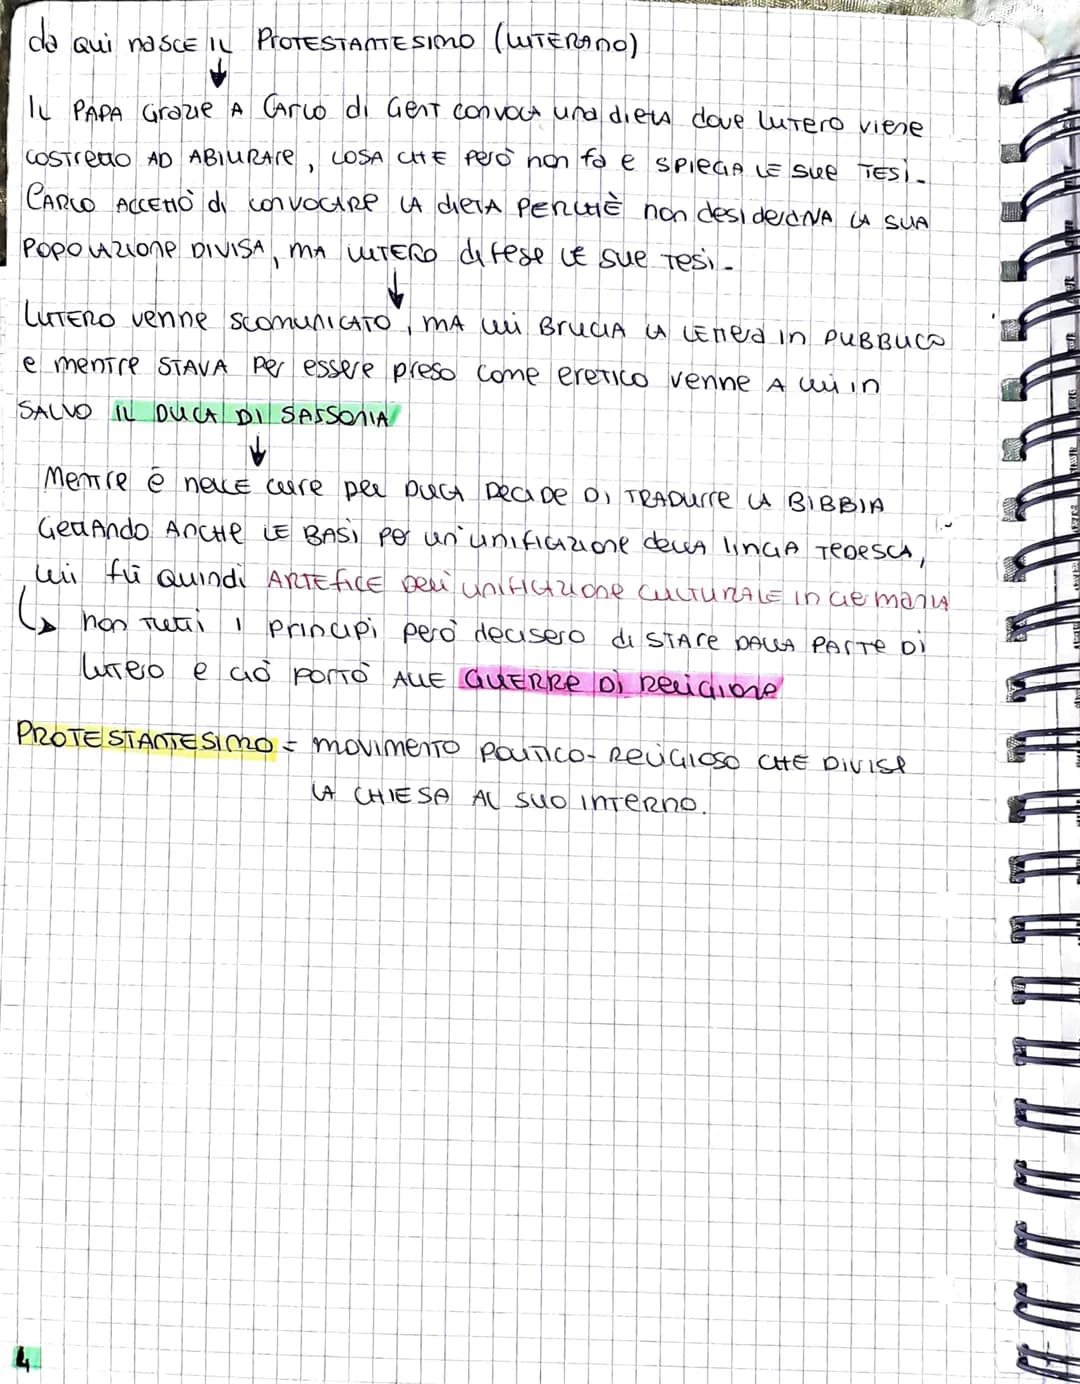 da qui nasce il PROTESTANTESIMO (LUTERANO)
IL PAPA Grazie A Carlo di Gent convoca una dieta dove lutero viene
costretto AD ABIURARE, COSA CHE però non fa e SPIEGA LE SUE TESI.
CARLO ACCETTÒ di CONVOCARE LA dieta PERCHÈ non desiderava LA SUA
POPOLAZIONE DIVISA, MA LUTERO difese LE SUE TESI.
LUTERO venne SCOMUNICATO, MA lui BRUCIA LA LETTERA in PUBBLICO
e mentre STAVA per essere preso come eretico venne A lui in
SALVO IL DUCA DI SASSONIA
Mentre è nelle cure del DUCA DECIDE DI TRADURRE LA BIBBIA
GETTANDO ANCHE LE BASI per un'unificazione della lingua TEDESCA,
lui fù quindi ARTEFICE dell'unificazione CULTURALE in Germania
non tutti i principi però decisero di STARE DALLA PARTE DI
lutero e ciò PORTÒ ALLE GUERRE DI Religione
PROTESTANTESIMO = MOVIMENTO POLITICO-RELIGIOSO CHE DIVISE
LA CHIESA AL SUO INTERNO.
4